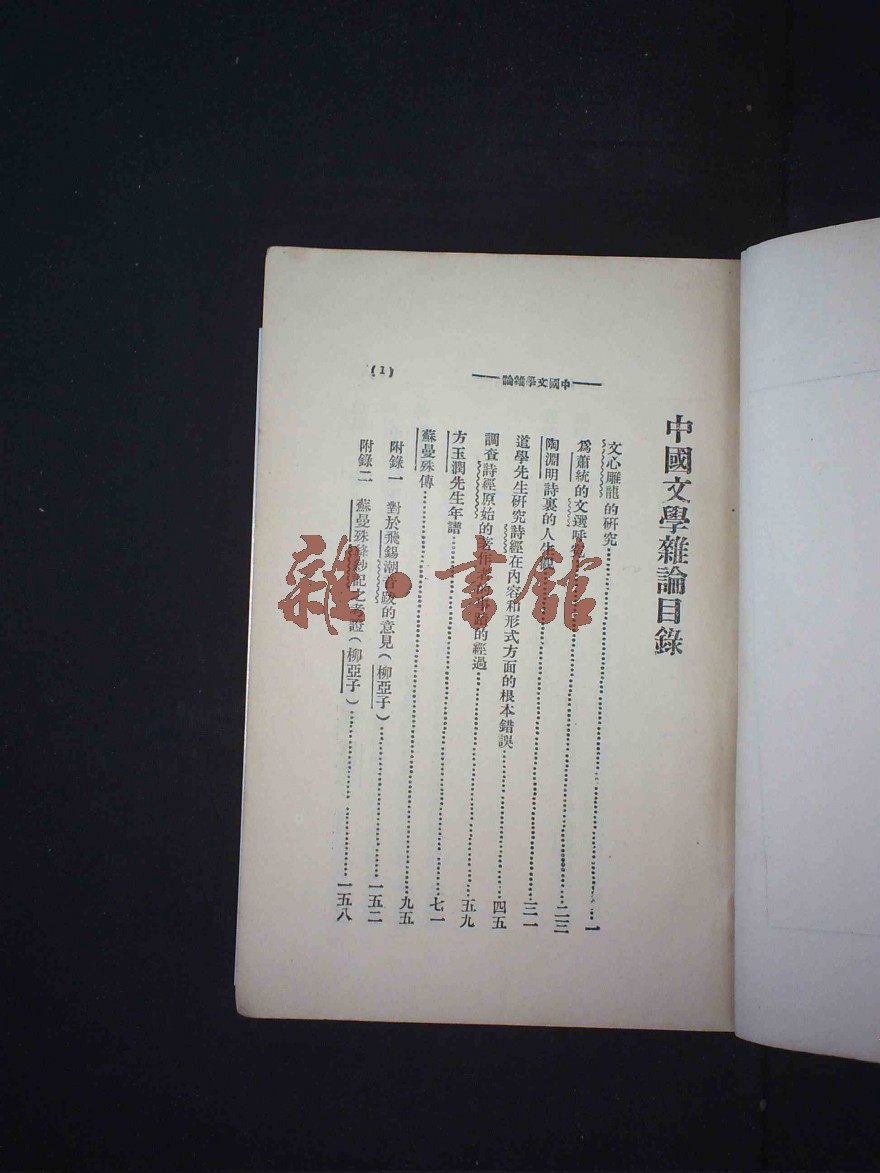 中國文學雜論目錄
中國文學雜論
文心雕龍的研究……一
爲蕭統的文選呼冤……二三
陶淵明詩裏的人生觀……三一
道學先生研究詩經在內容和形式方面的根本錯誤……四五
調查詩經原始的著作者的事蹟的經過……五九
方玉潤先生年譜……七一
蘇曼殊傳……九五
附錄一 對於飛錫潮音跋的意見(柳亞子)……一五二
附錄二 蘇曼殊絳紗記之考證(柳亞子)……一五八
(1)
雜·書館